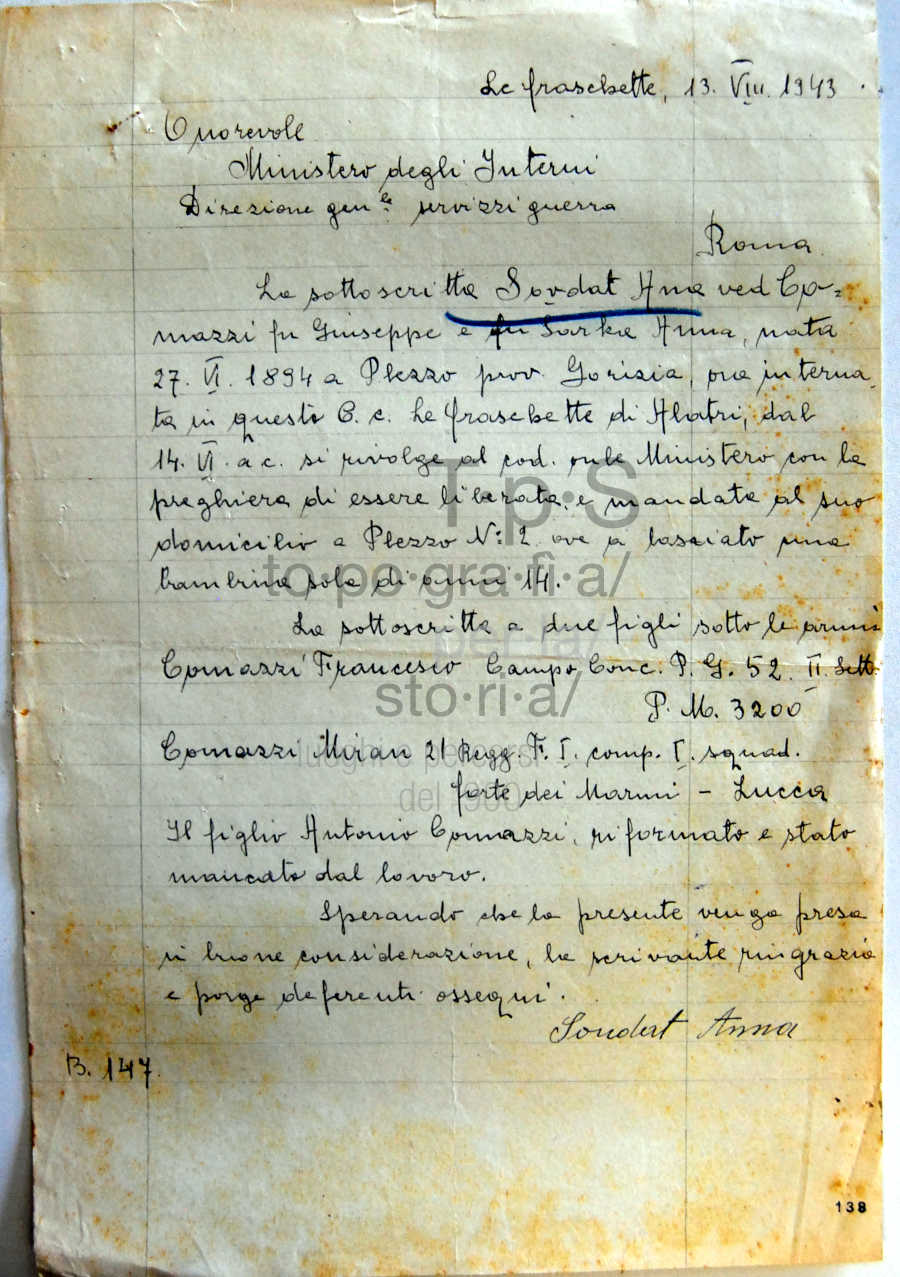 Le fraschette, 13. VIII. 1943
Onorevole
Ministero degli Interni
Direzione gen.le servizzi guerra
Roma
La sottoscritta Sovdat Ana ved Co=
mazzi fu Giuseppe e fu Šarka Anna, nata
27. VI. 1894 a Plezzo prov. Gorizia, ora interna,
ta in questo C. c. Le fraschette di Alatri, dal
14. VI. a c. si rivolge al cod. onle Ministero con la
preghiera di essere liberata, e mandata al suo
domicilio a Plezzo N: 2 ove a lasciato una
bambina sola di anni 14.
La sottoscritta a due figli sotto le armi
Comazzi Francesco Campo Conc. P. G. 52 II. Sett.
P. M. 3200
Comazzi Miran 21 Regg. F. I. comp. I. squad.
forte dei Marmi - Lucca
Il figlio Antonio Comazzi, riformato e stato
mancato dal lavoro.
Sperando che la presente venga presa
in buone considerazione, la scrivante ringrazia
e porge deferenti ossequi.
Soudat Anna
B. 147.
138
T·p·S
to·po·gra·fi·a/
per la
sto·ri·a/
luoghi e percorsi
del '900